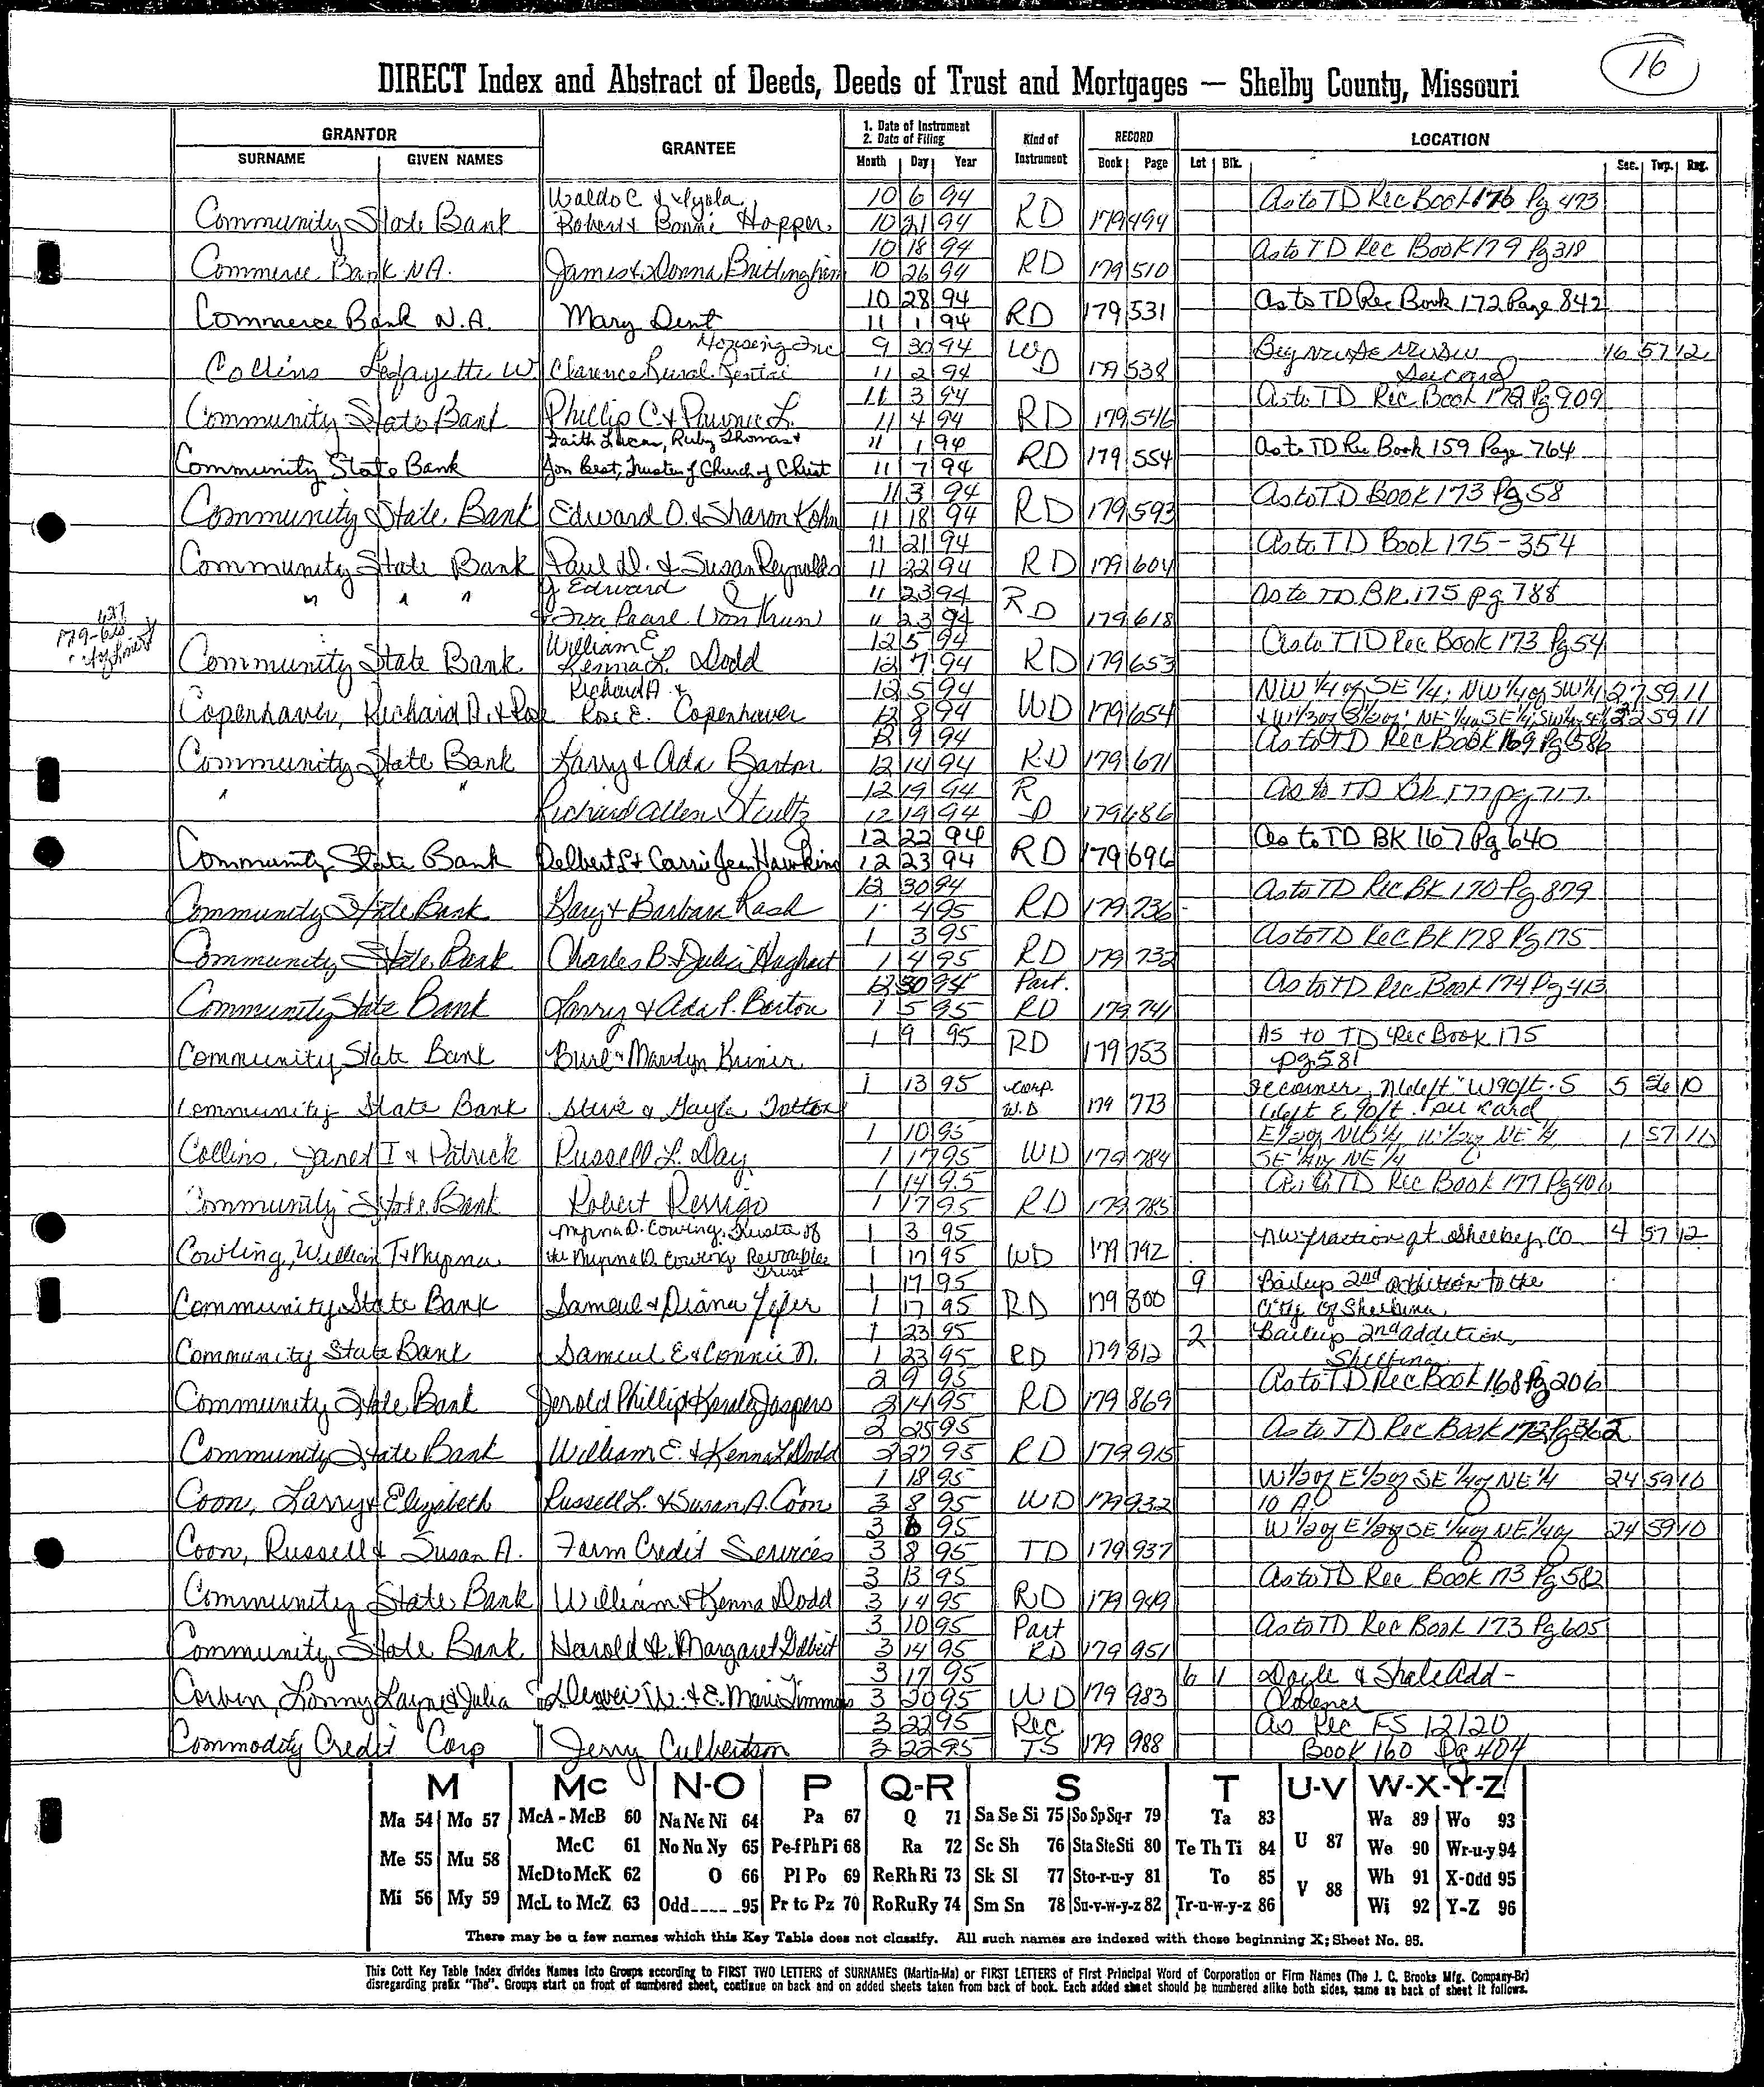 16
DIRECT Index and Abstract of Deeds, Deeds of Trust and Mortgages — Shelby County, Missouri
GRANTOR GRANTEE 1. Date of Instrument 2. Date of Filing Kind of Instrument RECORD LOCATION
SURNAME GIVEN NAMES Month Day Year Book Page Lot Blk. Sec. Twp. Rng.
Waldo C. & 10 6 94 As to TD Rec Book 176 Pg 473
Community State Bank Robert & Bonnie Hopper 10 21 94 RD 179 494
10 18 94 As to TD Rec Book 179 Pg 318
Commerce Bank N.A. James & Donna Brittingham 10 26 94 RD 179 510
10 28 94 As to TD Rec Book 172 Page 842
Commerce Bank N.A. Mary Dent 11 1 94 RD 179 531
Housing Inc 9 30 94 16 57 12
Collins Lafayette W. Clarence Rural 11 2 94 WD 179 538
11 3 94 As to TD Rec Book 172 Pg 909
Community State Bank Phillip C. & L. 11 4 94 RD 179 546
Faith Lucas, Ruby Thomas & 11 1 94 As to TD Rec Book 159 Page 764
Community State Bank Jon Best, Trustee of Church of Christ 11 7 94 RD 179 554
11 3 94 As to TD Book 173 Pg 58
Community State Bank Edward O. & Sharon Kohn 11 18 94 RD 179 593
11 21 94 As to TD Book 175-354
Community State Bank Paul D. & Susan Reynolds 11 22 94 RD 179 604
J. Edward 11 23 94 As to TD BK 175 pg 788
" " " Pearl Von Thun 11 23 94 RD 179 618
William E 12 5 94 As to TD Rec Book 173 Pg 54
Community State Bank Kenna L. Dodd 12 7 94 RD 179 653
Richard A. & 12 5 94 NW 1/4 of SE 1/4; NW 1/4 of SW 1/4 27 59 11
Copenhaver, Richard A. & Rose Rose E. Copenhaver 12 8 94 WD 179 654 22 59 11
12 9 94 As to TD Rec Book 169 Pg 586
Community State Bank Larry & Ada Barton 12 14 94 RD 179 671
" " 12 19 94 As to TD Bk 177 pg 717
Richard Allen Stultz 12 19 94 RD 179 686
12 22 94 As to TD BK 167 Pg 640
Community State Bank Delbert L & Carrie Jean Hawkins 12 23 94 RD 179 696
12 30 94 As to TD Rec BK 170 Pg 879
Community State Bank Gary & Barbara Rash 1 4 95 RD 179 736
1 3 95 As to TD Rec BK 178 Pg 175
Community State Bank Charles B & Julia 1 4 95 RD 179 732
12 30 94 Part. As to TD Rec Book 174 Pg 413
Community State Bank Larry & Ada P. Barton 1 5 95 RD 179 741
1 9 95 As to TD Rec Book 175
Community State Bank Burl & Marilyn RD 179 753 pg 581
1 13 95 Corp. SE corner, W 90 ft. S 5 56 10
Community State Bank Steve & Gayla W.D 179 773 E. 90 ft. per card
1 10 95 1 57
Collins, Janet I & Patrick Russell L. Day 1 17 95 WD 179 784 SE 1/4 of NE 1/4
1 14 95 As to TD Rec Book 177 Pg 406
Community State Bank Robert Perrigo 1 17 95 RD 179 785
Myrna D. Cowling, Trustee of 1 3 95 NW fraction qt Shelby Co 4 57 12
Cowling, William T & Myrna the Myrna D. Cowling Revocable Trust 1 17 95 WD 179 792
1 17 95 9 Baileys 2nd addition to the
Community State Bank Samuel & Diana 1 17 95 RD 179 800 City of Shelbina
1 23 95 2 Baileys 2nd addition
Community State Bank Samuel E & Connie N. 1 23 95 RD 179 812 Shelbina
2 9 95 As to TD Rec Book 168 Pg 206
Community State Bank Jerold Phillip & Karla Jaspers 2 14 95 RD 179 869
2 25 95 As to TD Rec Book 172 Pg 362
Community State Bank William E. & Kenna L Dodd 2 27 95 RD 179 915
1 18 95 W 1/2 of E 1/2 of SE 1/4 of NE 1/4 24 59 10
Coon, Larry & Elizabeth Russell L. & Susan A. Coon 3 8 95 WD 179 932 10 A.
3 6 95 W 1/2 of E 1/2 of SE 1/4 of NE 1/4 of 24 59 10
Coon, Russell & Susan A. Farm Credit Services 3 8 95 TD 179 937
3 13 95 As to TD Rec Book 173 Pg 582
Community State Bank William & Kenna Dodd 3 14 95 RD 179 949
3 10 95 Part As to TD Rec Book 173 Pg 605
Community State Bank Harold & Margaret Gilbert 3 14 95 RD 179 951
3 17 95 6 1 Doyle & Shale Add-
Corbin, Lonny Layne & Julia W. & E. Marie Timmons 3 20 95 WD 179 983 Clarence
3 22 95 Rec As Rec FS 12120
Commodity Credit Corp Jerry Culbertson 3 22 95 TS 179 988 Book 160 Pg 404
M Mc N-O P Q-R S T U-V W-X-Y-Z
Ma 54 Mo 57 McA - McB 60 Na Ne Ni 64 Pa 67 Q 71 Sa Se Si 75 So Sp Sq-r 79 Ta 83 Wa 89 Wo 93
McC 61 No Nu Ny 65 Pe-f Ph Pi 68 Ra 72 Sc Sh 76 Sta Ste Sti 80 Te Th Ti 84 U 87 We 90 Wr-u-y 94
Me 55 Mu 58 McD to McK 62 O 66 Pl Po 69 Re Rh Ri 73 Sk Sl 77 Sto-r-u-y 81 To 85 V 88 Wh 91 X-Odd 95
Mi 56 My 59 McL to McZ 63 Odd 95 Pr to Pz 70 Ro Ru Ry 74 Sm Sn 78 Su-v-w-y-z 82 Tr-u-w-y-z 86 Wi 92 Y-Z 96
There may be a few names which this Key Table does not classify. All such names are indexed with those beginning X; Sheet No. 95.
This Cott Key Table Index divides Names into Groups according to FIRST TWO LETTERS of SURNAMES (Martin-Ma) or FIRST LETTERS of First Principal Word of Corporation or Firm Names (The J. C. Brooks Mfg. Company-Br)
disregarding prefix "The". Groups start on front of numbered sheet, continue on back and on added sheets taken from back of book. Each added sheet should be numbered alike both sides, same as back of sheet it follows.